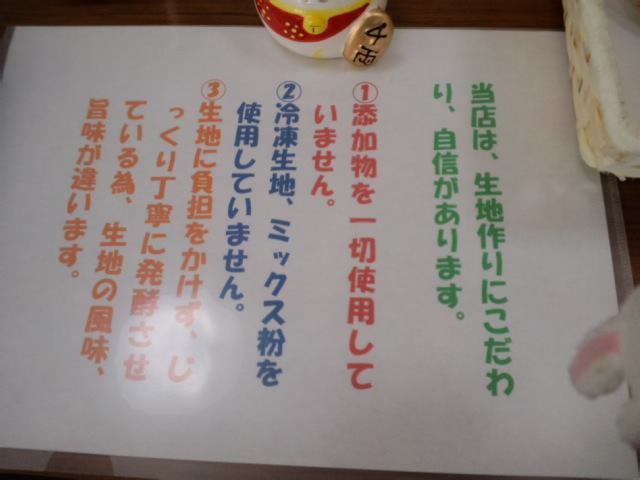 当店は、生地作りにこだわ
り、自信があります。
①添加物を一切使用して
いません。
②冷凍生地、ミックス粉を
使用していません。
③生地に負担をかけず、じ
っくり丁寧に発酵させ
ている為、生地の風味、
旨味が違います。
千両